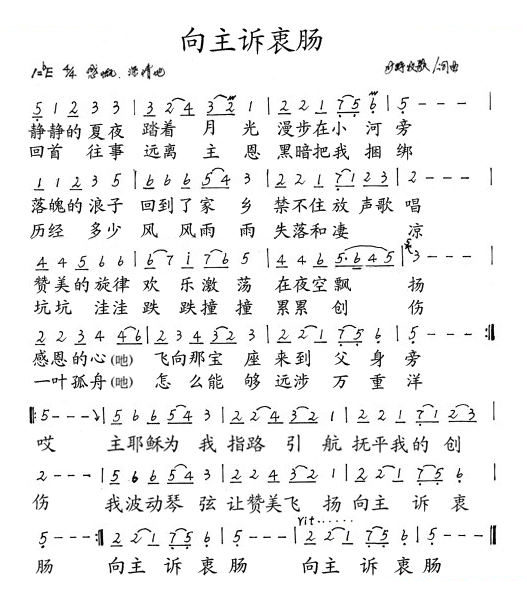 向主诉衷肠
1=♭E 4/4
词曲
5 1 2 3 3 | 3 2 4 3 3 2 | 2 2 1 7 5 6 | 5 - - - |
静静的夏夜 踏着 月 光 漫步在小 河 旁
回首 往事 远离 主 恩 黑暗把我 捆 绑
1 1 2 3 5 | 6 6 6 5 4 3 | 2 2 2 7 1 2 3 | 2 - - - |
落魄的浪子 回到了家 乡 禁不住放声歌 唱
历经 多少 风 风雨 雨 失落和凄 凉
4 4 5 6 6 | 6 7 i 7 6 5 | 4 4 6 6 5· 6 4 5 | 3 - - - |
赞美的旋律 欢 乐激 荡 在夜空飘 扬
坑坑 洼洼 跌 跌撞 撞 累累 创 伤
2 2 3 4 4 6 | 2 3 4 3 2 | 2 2 1 7 5 6 | 5 - - - :||
感恩的心(吔) 飞向那宝 座 来到 父 身 旁
一叶孤舟(吔) 怎 么能 够 远涉 万 重 洋
||: 5 - - - | 5 6 6 5 4 3 | 2 2 4 3 2 1 | 2 2 1 7 1 2 3 |
哎 主耶稣为 我 指路 引 航 抚平我的 创
2 - - - | 5 6 6 5 4 3 | 2 2 4 3 2 1 | 2 2 1 7 5 6 |
伤 我波动琴 弦 让赞美飞 扬 向主 诉 衷
5 - - - :|| 2 2 1 7 5 6 | 5 - - - | 2 2 1 7 5 6 | 5 - - - ||
rit......
肠 向主 诉 衷 肠 向主 诉 衷 肠